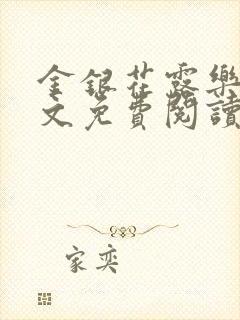 金銀花露樂
文免費閱讀
家奕